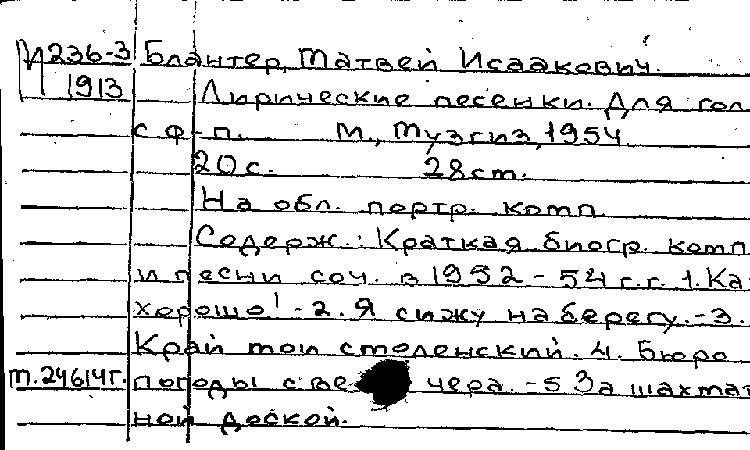 И236-3 Блантер, Матвей Исаакович.
1913 Лирические песенки. Для гол
с ф-п. М., Музгиз, 1954
20 с. 28 ст.
На обл. портр. комп
Содерж.: Краткая биогр. комп
и песни соч. в 1952 - 54 г.г. 1. Ка
хорошо! - 2. Я сижу на берегу. - 3.
Край мой смоленский. 4. Бюро
т.24614г. погоды чера. - 5 За шахмат
ной доской.